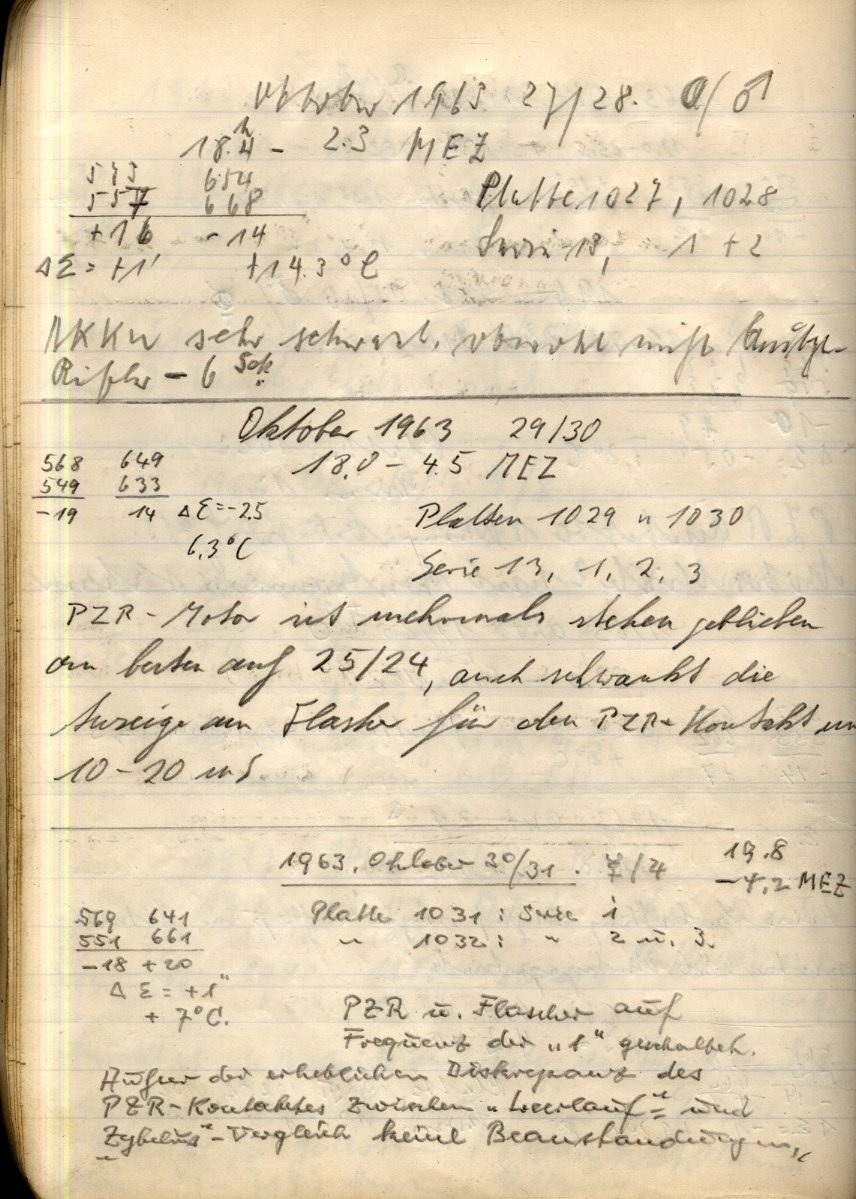 Oktober 1963 27/28. ☉/♂
18.4ʰ - 2.3 MEZ
573 654
557 668 Platte 1027, 1028
+16 -14 Serie 13, 1 + 2
Δ Σ = +1' +14.3°C
sehr schwach, obwohl nicht
Rifler - 6 Sek.
Oktober 1963 29/30
568 649 18.0 - 4.5 MEZ
549 633
-19 14 Δ Σ = -2.5 Platten 1029 u 1030
6,3°C
Serie 13, 1, 2, 3
PZR - Motor ist mehrmals stehen geblieben
am besten auf 25/24, auch schwankt die
Anzeige am Flasher für den PZR-Kontakt um
10-20 mS
1963. Oktober 30/31. ☿/♃ 19.8
-4,2 MEZ
569 641 Platte 1031 : Serie 1
551 661 " 1032 : " 2 u. 3.
-18 +20
Δ Σ = +1"
+ 7°C.
PZR u. Flascher auf
Frequenz der „1" geschaltet.
Außer der erheblichen Diskrepanz des
PZR-Kontaktes zwischen „Leerlauf"- und
„Zyklus"-Vergleich keine Beanstandungen